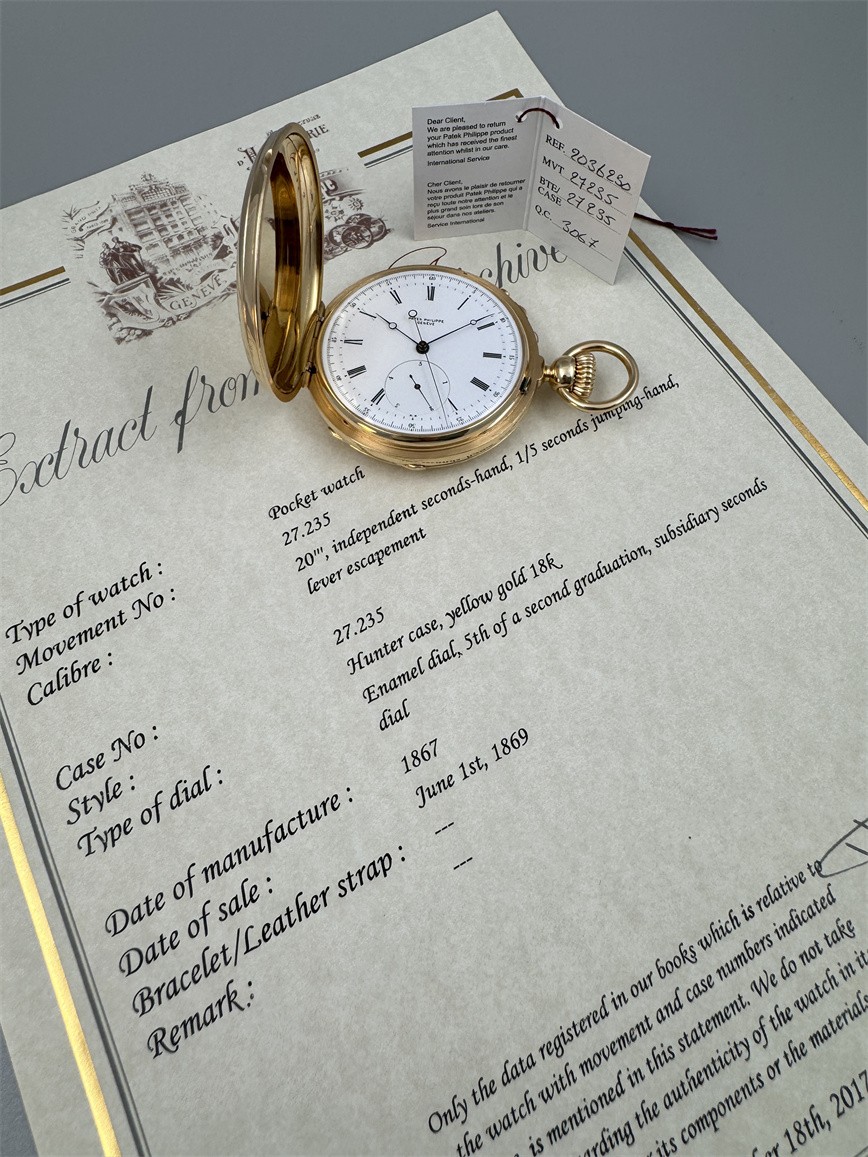 GENÈVE
Extract from
chive
Dear Client,
We are pleased to return
your Patek Philippe product
which has received the finest
attention whilst in our care.
International Service
Cher Client,
Nous avons le plaisir de retourner
votre produit Patek Philippe qui a
reçu toute notre attention et le
plus grand soin lors de son
séjour dans nos ateliers.
Service International
REF. 2036230
MVT. 27235
BTE/CASE 27235
Q.C. 3067
PATEK PHILIPPE
GENÈVE
Type of watch : Pocket watch
Movement No : 27.235
Calibre : 20''', independent seconds-hand, 1/5 seconds jumping-hand,
lever escapement
Case No : 27.235
Style : Hunter case, yellow gold 18k
Type of dial : Enamel dial, 5th of a second graduation, subsidiary seconds
dial
Date of manufacture : 1867
Date of sale : June 1st, 1869
Bracelet/Leather strap : ---
Remark : ---
Only the data registered in our books which is relative to
the watch with movement and case numbers indicated
is mentioned in this statement. We do not take
arding the authenticity of the watch in it
its components or the materials
er 18th, 2017